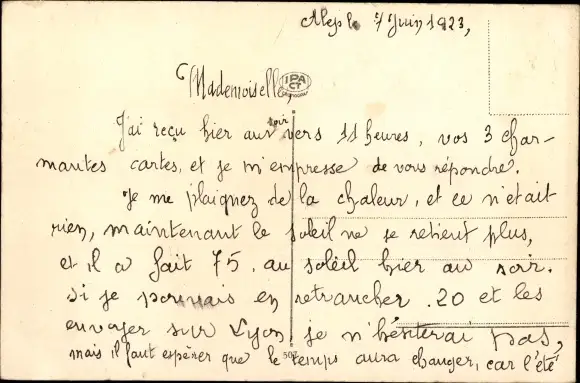 Alep le 7 Juin 1923,
Mademoiselle,
IPA
CT
J'ai reçu hier au soir vers 11 heures, vos 3 char-
mantes cartes, et je m'empresse de vous répondre.
Je me plaignez de la chaleur, et ce n'était
rien, maintenant le soleil ne se retient plus,
et il a fait 75. au soleil hier au soir.
Si je pouvais en retrancher .20 et les
envoyer sur Lyon je n'hésiterai pas,
mais il faut espérer que le temps aura changer, car l'été
507